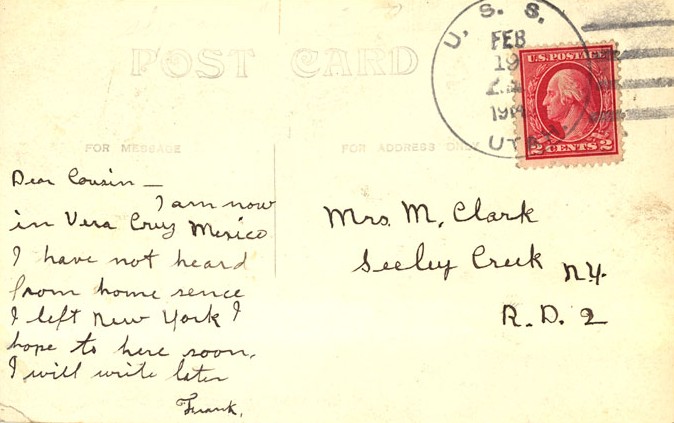 POST CARD
U. S. S.
FEB
19
UTAH
U.S. POSTAGE
2 CENTS 2
FOR MESSAGE
FOR ADDRESS ONLY
Dear Cousin —
I am now
in Vera Cruz Mexico
I have not heard
from home sence
I left New York I
hope to here soon.
I will write later
Frank.
Mrs. M. Clark
Seeley Creek N.Y.
R. D. 2